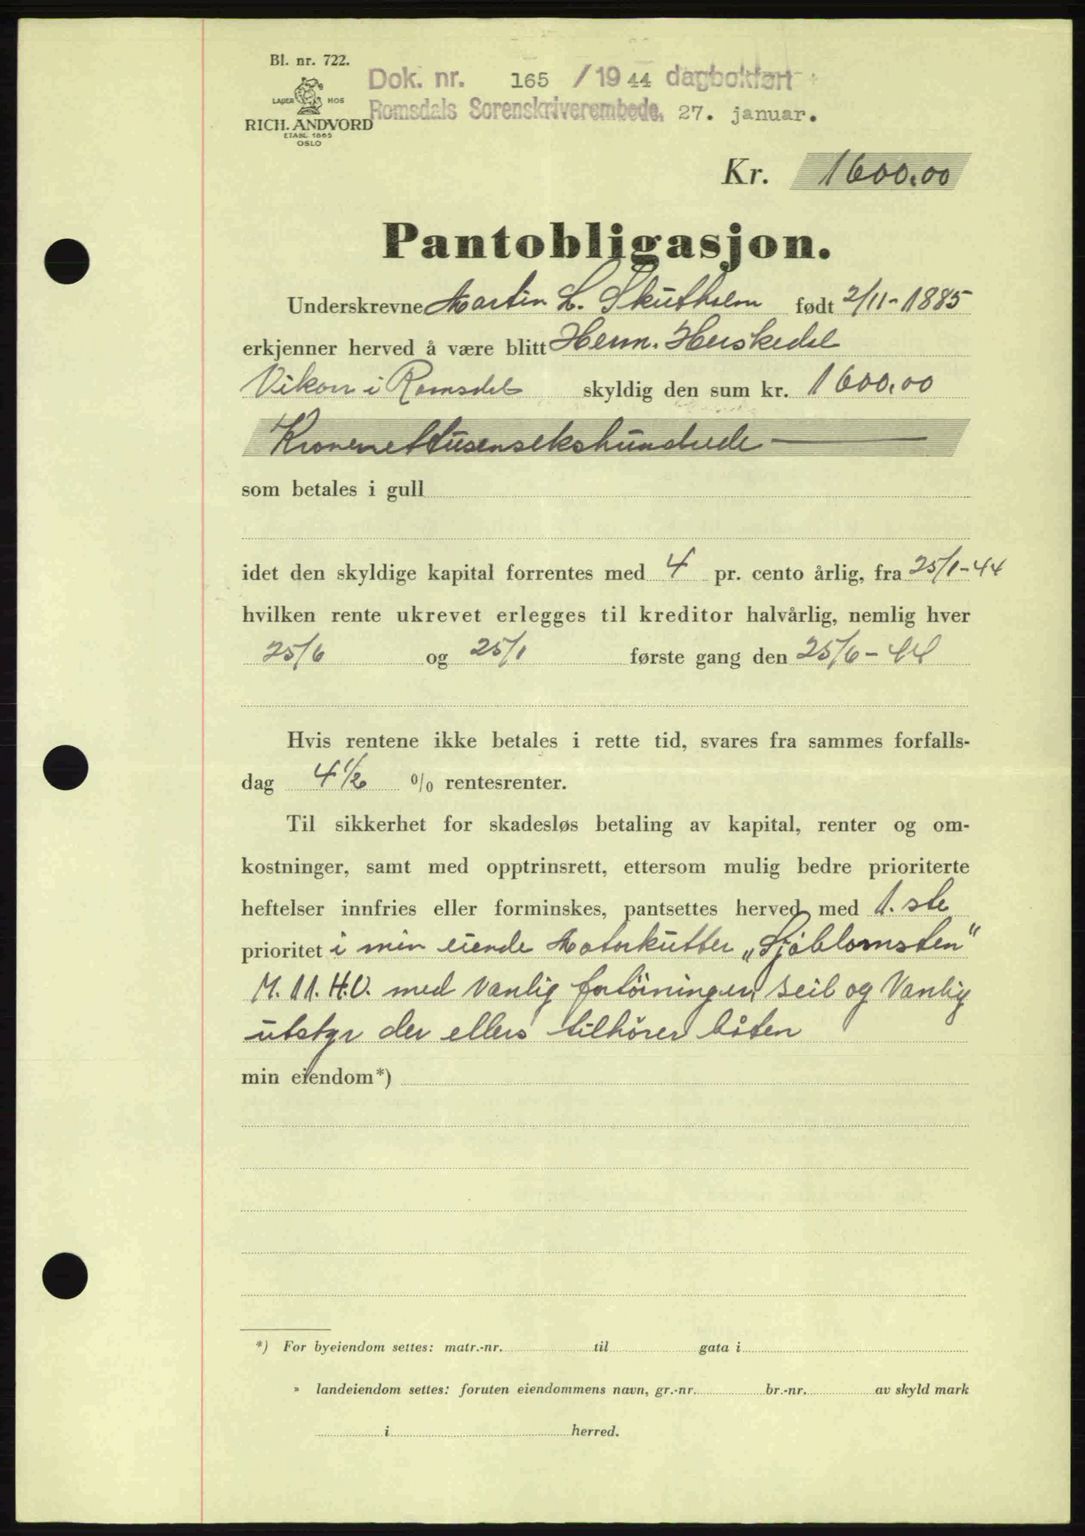 Bl. nr. 722.
LAGER HOS
RICH. ANDVORD
ETABL 1865
OSLO
Dok. nr. 165 / 1944 dagbokført
Romsdals Sorenskriverembede, 27. januar.
Kr. 1600,00
Pantobligasjon.
Underskrevne Martin L. Skutholm født 2/11-1885
erkjenner herved å være blitt Herm. Herskedal
Vikon i Romsdal skyldig den sum kr. 1600,00
Kronerettusensekshundrede
som betales i gull
idet den skyldige kapital forrentes med 4 pr. cento årlig, fra 25/1-44
hvilken rente ukrevet erlegges til kreditor halvårlig, nemlig hver
25/6 og 25/1 første gang den 25/6-44
Hvis rentene ikke betales i rette tid, svares fra sammes forfalls-
dag 4 1/2 % rentesrenter.
Til sikkerhet for skadesløs betaling av kapital, renter og om-
kostninger, samt med opptrinsrett, ettersom mulig bedre prioriterte
heftelser innfries eller forminskes, pantsettes herved med 1. ste
prioritet i min eiende Motorkutter „Sjøblomsten"
M. 11. H.Ø. med vanlig fortöininger, seil og Vanlig
utstyr der ellers tilhörer båten
min eiendom*)
*) For byeiendom settes: matr.-nr. til gata i
» landeiendom settes: foruten eiendommens navn, gr.-nr. br.-nr. av skyld mark
i herred.